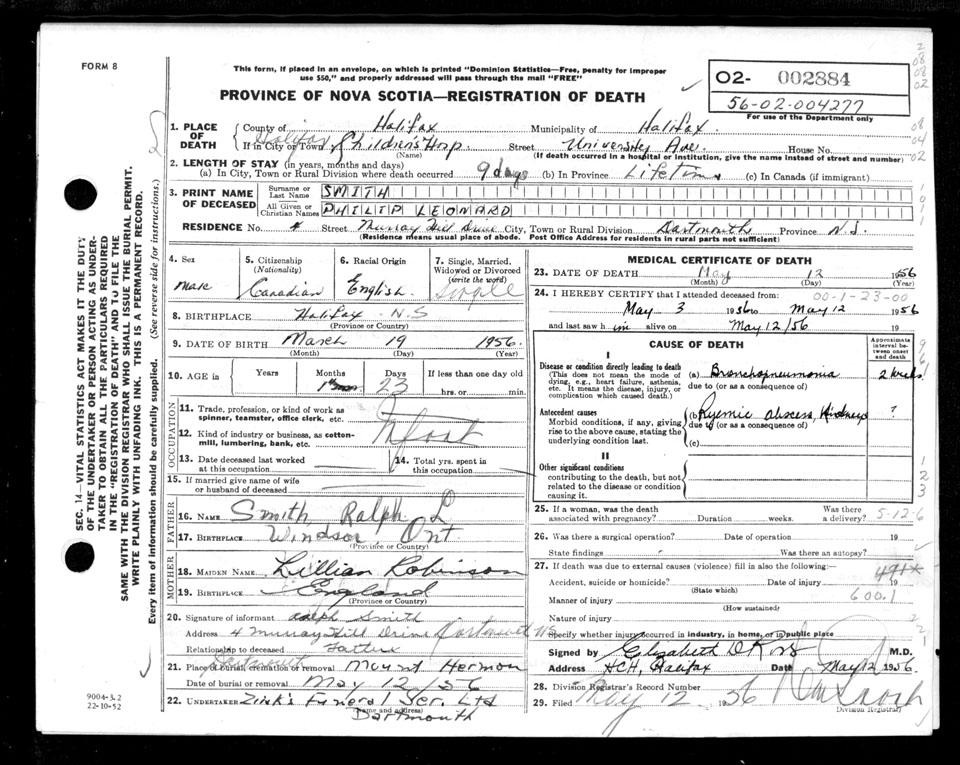 FORM 8
This form, if placed in an envelope, on which is printed "Dominion Statistics—Free, penalty for improper
use $50," and properly addressed will pass through the mail "FREE"
PROVINCE OF NOVA SCOTIA—REGISTRATION OF DEATH
O2- 002884
56-02-004277
For use of the Department only
SEC. 14—VITAL STATISTICS ACT MAKES IT THE DUTY
OF THE UNDERTAKER OR PERSON ACTING AS UNDER-
TAKER TO OBTAIN ALL THE PARTICULARS REQUIRED
IN THE "REGISTRATION OF DEATH" AND TO FILE THE
SAME WITH THE DIVISION REGISTRAR WHO SHALL ISSUE THE BURIAL PERMIT.
WRITE PLAINLY WITH UNFADING INK. THIS IS A PERMANENT RECORD.
Every item of information should be carefully supplied. (See reverse side for instructions.)
1. PLACE OF DEATH County of Halifax Municipality of Halifax
If in City or Town Halifax Childrens Hosp. Street University Ave. House No.
(Name) (If death occurred in a hospital or institution, give the name instead of street and number)
2. LENGTH OF STAY (in years, months and days)
(a) In City, Town or Rural Division where death occurred 9 days (b) In Province Lifetime (c) In Canada (if immigrant)
3. PRINT NAME OF DECEASED Surname or Last Name SMITH
All Given or Christian Names PHILIP LEONARD
RESIDENCE No. 4 Street Murray Hill Drive City, Town or Rural Division Dartmouth Province N.S.
(Residence means usual place of abode. Post Office Address for residents in rural parts not sufficient)
4. Sex Male
5. Citizenship (Nationality) Canadian
6. Racial Origin English
7. Single, Married, Widowed or Divorced (write the word) Single
8. BIRTHPLACE Halifax N.S
(Province or Country)
9. DATE OF BIRTH March 19 1956
(Month) (Day) (Year)
10. AGE in Years Months 1 Days 23 If less than one day
hrs. or min.
OCCUPATION
11. Trade, profession, or kind of work as
spinner, teamster, office clerk, etc. Infant
12. Kind of industry or business, as cotton-
mill, lumbering, bank, etc.
13. Date deceased last worked
at this occupation
14. Total yrs. spent in
this occupation
15. If married give name of wife
or husband of deceased
FATHER
16. NAME Smith, Ralph L
17. BIRTHPLACE Windsor Ont
(Province or Country)
MOTHER
18. MAIDEN NAME Lillian Robinson
19. BIRTHPLACE England
(Province or Country)
20. Signature of informant Ralph Smith
Address 4 Murray Hill Drive Dartmouth NS
Relationship to deceased Father
21. Place of burial, cremation or removal Dartmouth Mount Hermon
Date of burial or removal May 12/56
22. UNDERTAKER Zink's Funeral Ser. Ltd
(Name and address) Dartmouth
9004-3.2
22-10-52
MEDICAL CERTIFICATE OF DEATH
23. DATE OF DEATH May 12 1956
(Month) (Day)
24. I HEREBY CERTIFY that I attended deceased from: 00-1-23-00
May 3 1956 to May 12 1956
and last saw him alive on May 12/56 19
CAUSE OF DEATH
Approximate interval between onset and death
I
Disease or condition directly leading to death
(This does not mean the mode of
dying, e.g., heart failure, asthenia,
etc. It means the disease, injury, or
complication which caused death.)
(a) Bronchopneumonia 2 weeks
due to (or as a consequence of)
Antecedent causes
Morbid conditions, if any, giving
rise to the above cause, stating the
underlying condition last.
(b) Pyemic abscess, Kidneys ?
due to (or as a consequence of)
(c)
II
Other significant conditions
contributing to the death, but not
related to the disease or condition
causing it.
25. If a woman, was the death
associated with pregnancy? Duration weeks. Was there
a delivery? 5-12-6
26. Was there a surgical operation? Date of operation 19
State findings Was there an autopsy?
27. If death was due to external causes (violence) fill in also the following:—
Accident, suicide or homicide? Date of injury 19
(State which) 491*
Manner of injury 600.1
(How sustained)
Nature of injury
Specify whether injury occurred in industry, in home, or in public place
Signed by Elizabeth D Ross M.D.
Address HCH, Halifax Date May 12 1956
28. Division Registrar's Record Number
29. Filed May 12 1956
Division Registrar